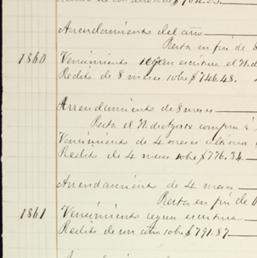 Arrendamientos del año
Resta en fin de 8
1860 Vencimiento segun escritura el 31 d
Redito de 8 meses sobre $746.48.
Arrendamiento de 8 meses
Resta el 31 de
Vencimiento de 4 meses
Redito de 4 meses sobre $776.34.
Arrendamiento de 4 meses
Resta en fin de
1861 Vencimiento segun escritura
Redito de un año sobre $791.87.